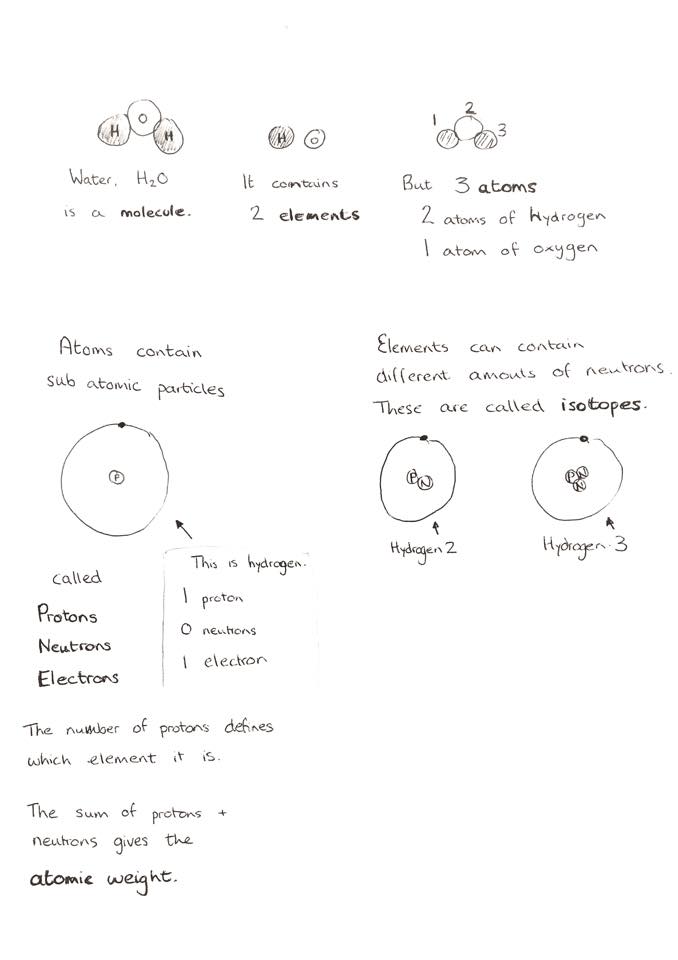 H O H
Water, H₂O
is a molecule.
H O
It contains
2 elements
1 2 3
But 3 atoms
2 atoms of Hydrogen
1 atom of oxygen
Atoms contain
sub atomic particles
P
This is hydrogen.
1 proton
0 neutrons
1 electron
called
Protons
Neutrons
Electrons
The number of protons defines
which element it is.
The sum of protons +
neutrons gives the
atomic weight.
Elements can contain
different amouts of neutrons.
These are called isotopes.
P N
Hydrogen 2
P N
N
Hydrogen 3